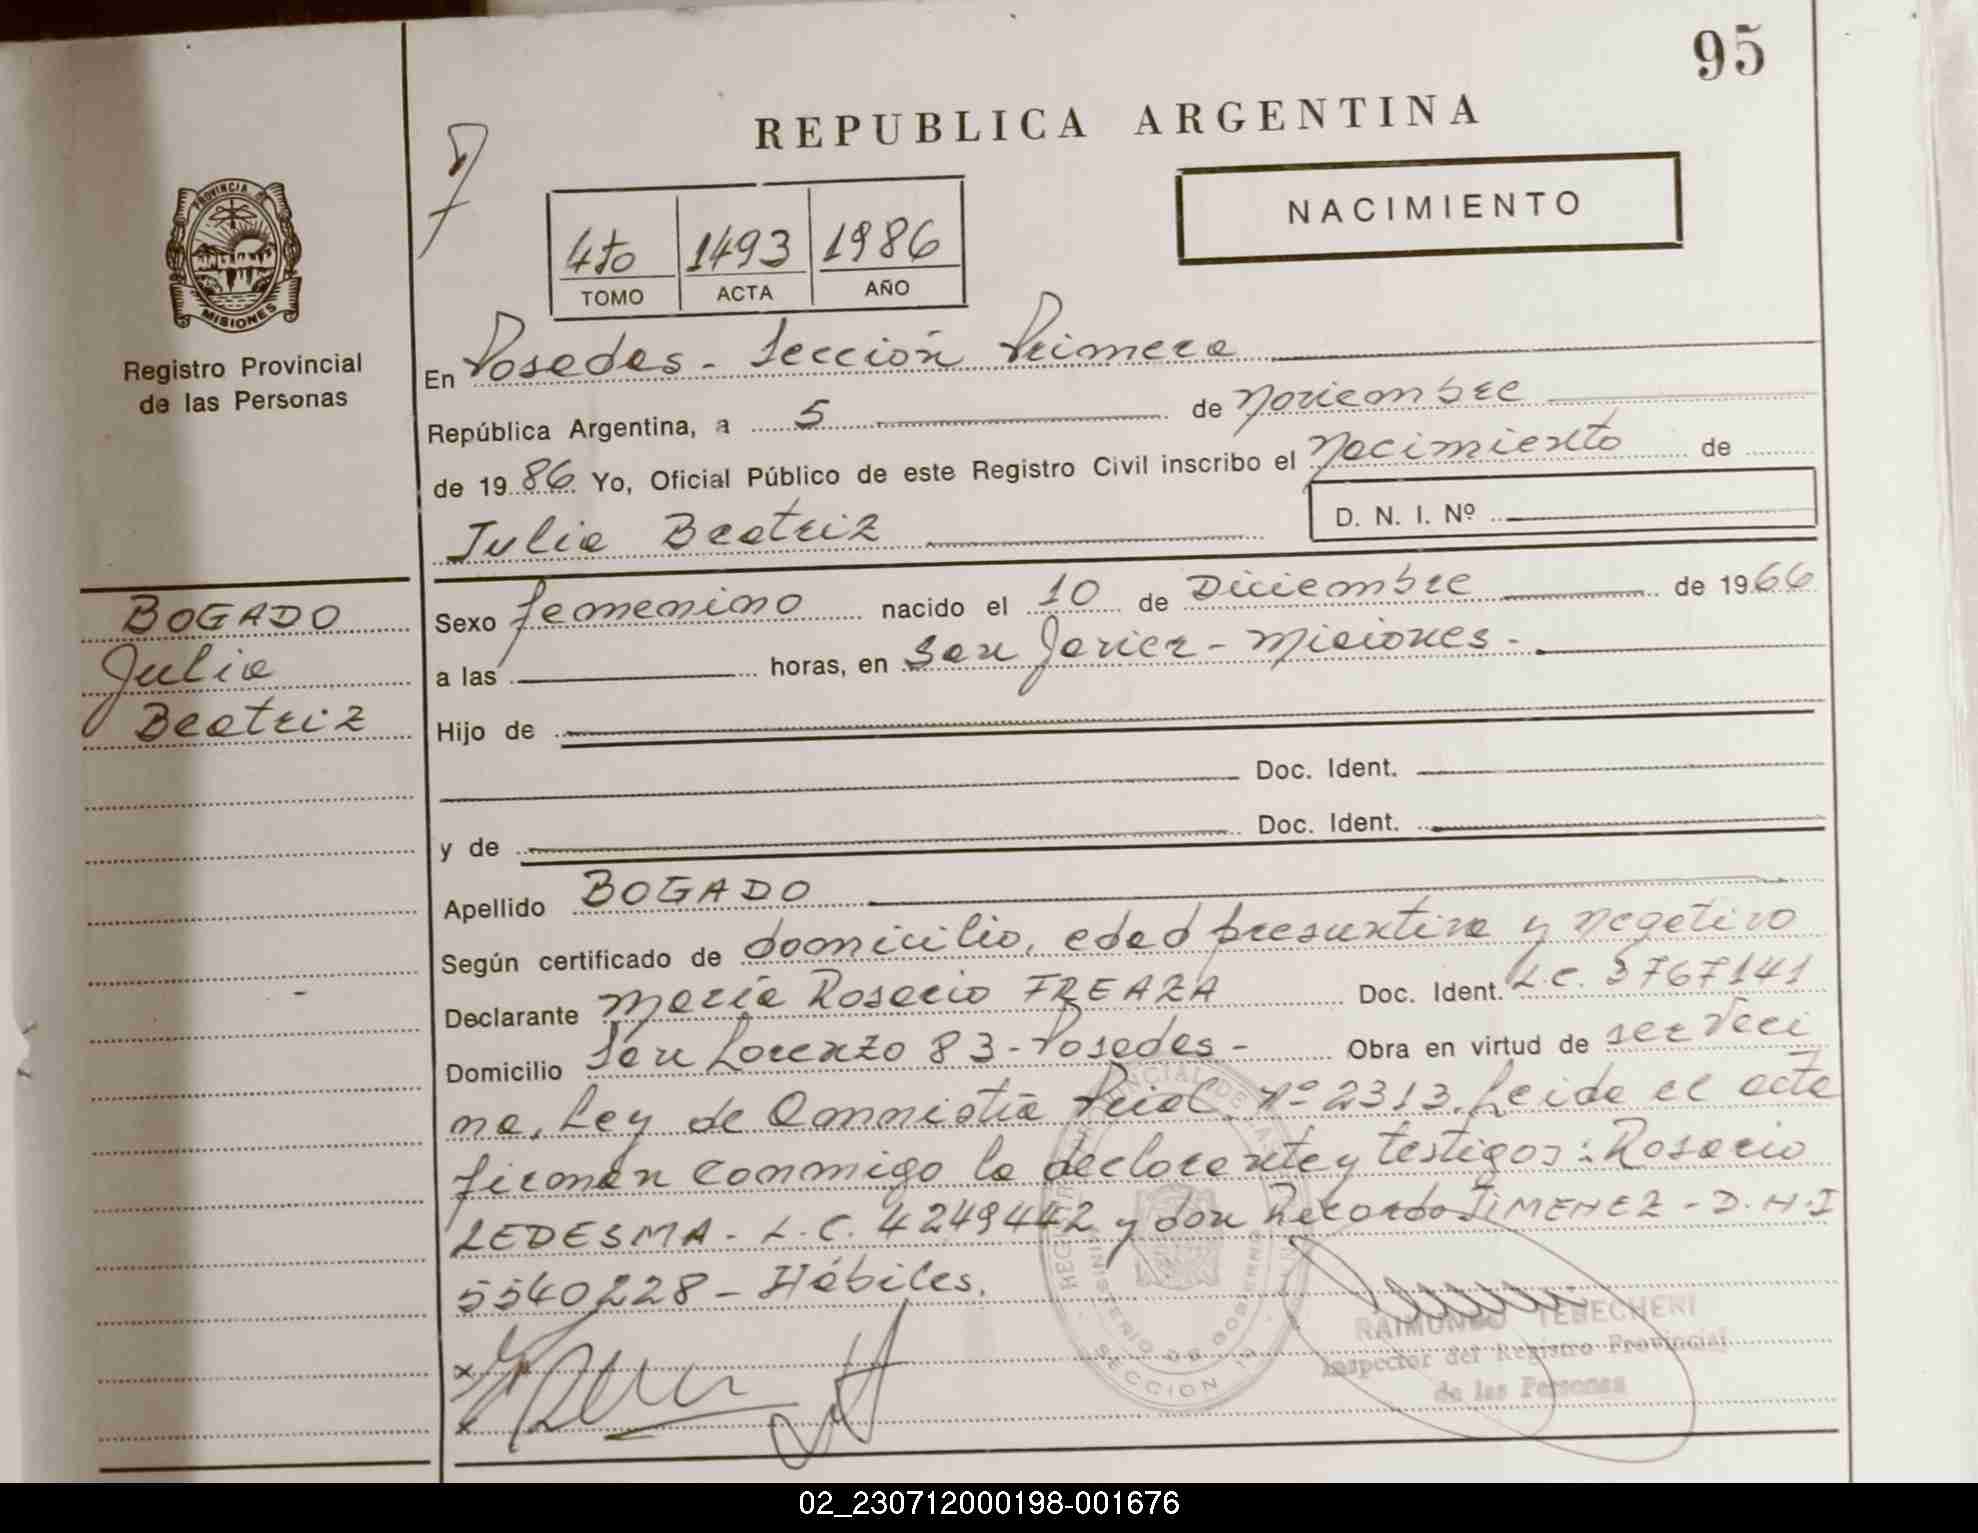 95
REPUBLICA ARGENTINA
NACIMIENTO
4to 1493 1986
TOMO ACTA AÑO
PROVINCIA DE
MISIONES
Registro Provincial
de las Personas
En Posadas - Sección Primera
República Argentina, a 5 de Noviembre
de 1986 Yo, Oficial Público de este Registro Civil inscribo el Nacimiento de
D. N. I. Nº
Julia Beatriz
BOGADO
Julia
Beatriz
Sexo femenino nacido el 10 de Diciembre de 1966
a las horas, en San Javier - Misiones -
Hijo de
Doc. Ident.
y de Doc. Ident.
Apellido BOGADO
Según certificado de domicilio, edad presuntiva y negativo
Declarante María Rosario FREAZA Doc. Ident. L.C. 3767141
Domicilio San Lorenzo 83 - Posadas - Obra en virtud de ser veci
na, Ley de Amnistía Pcial. Nº 2313. Leida el acta
firman conmigo la declarante y testigos: Rosario
LEDESMA - L.C. 4249442 y don Ricardo JIMENEZ - D.N.I
5540228 - Hábiles.
RAIMUNDO TEBECHERI
Inspector del Registro Provincial
de las Personas
MINISTERIO DE GOBIERNO
SECCION 1a
02_230712000198-001676